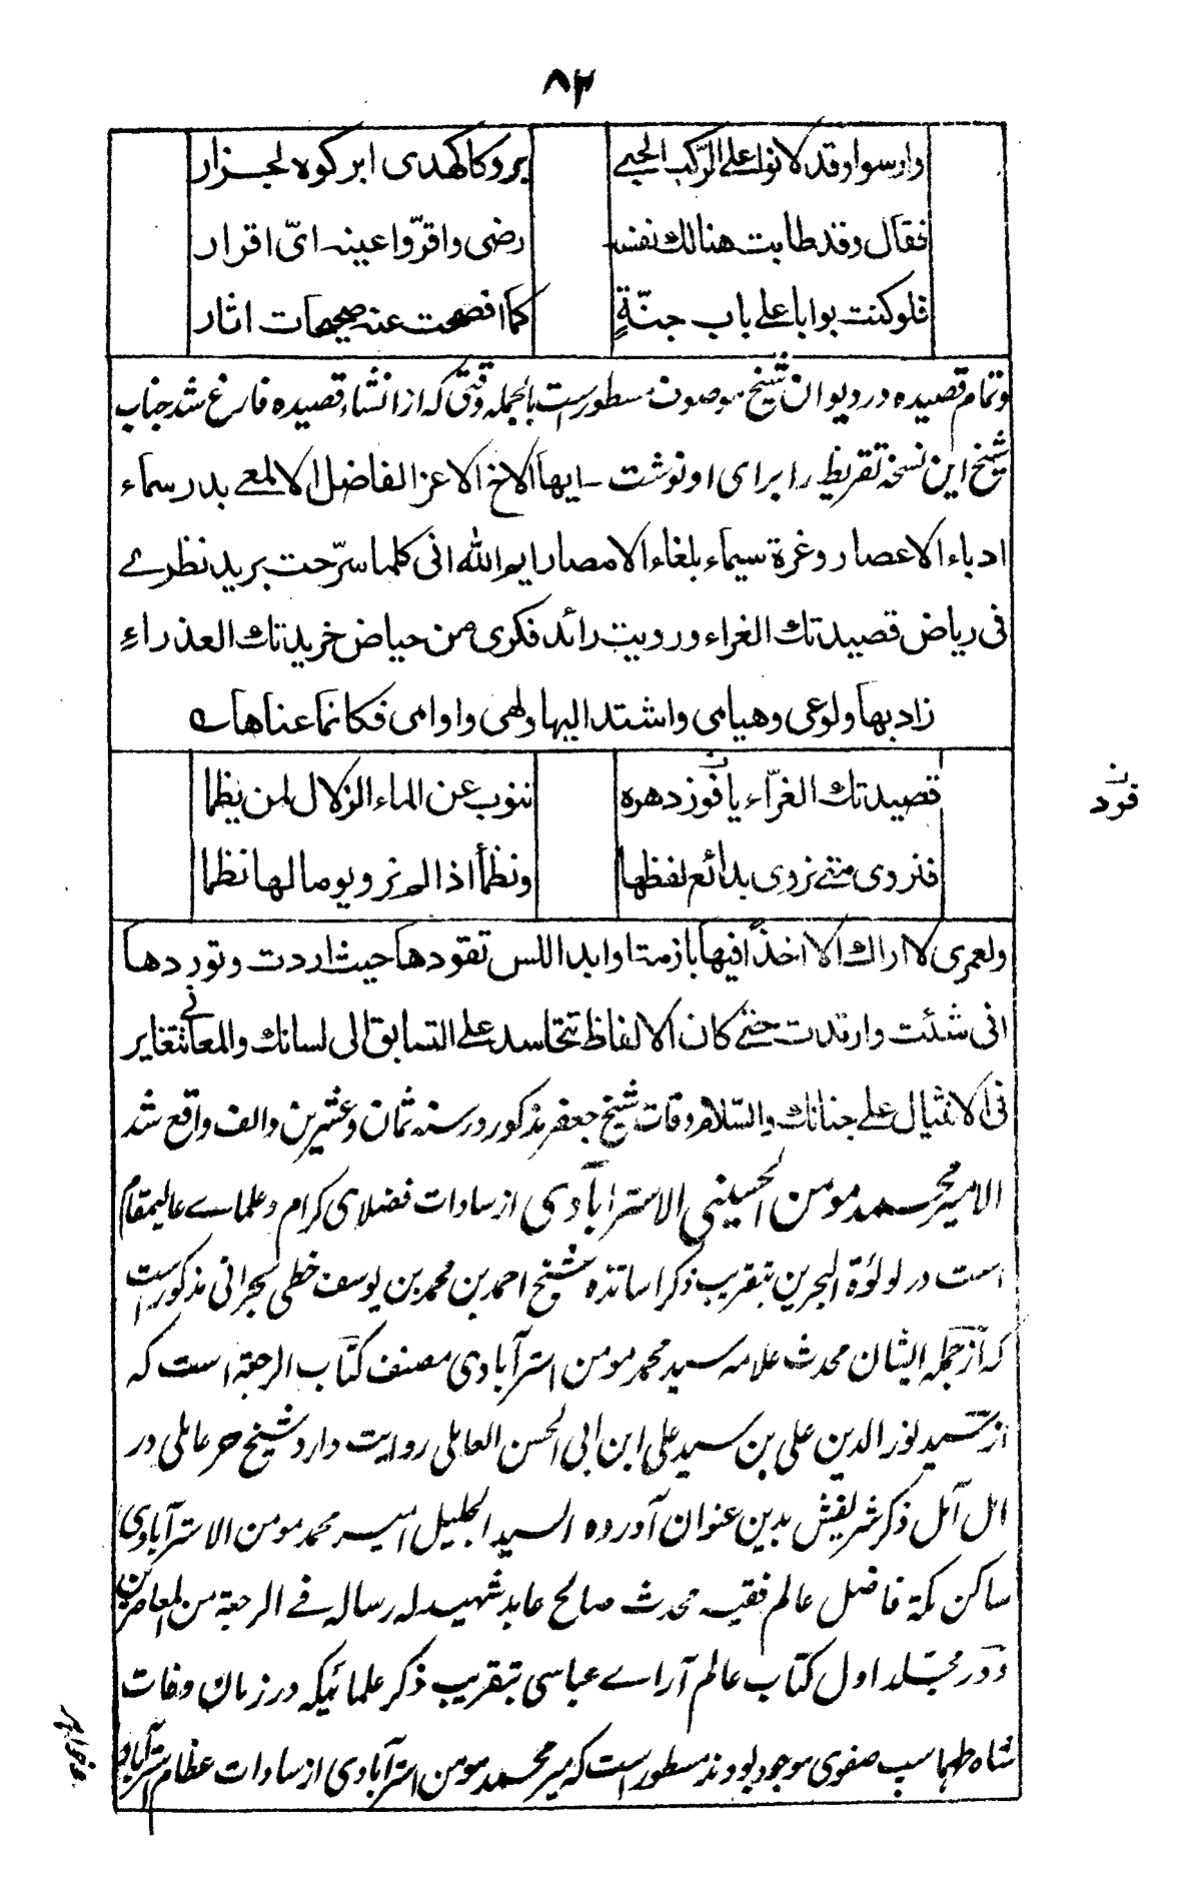 ۸۲
وارسوا وقد لاثوا على الركب الحبى بروكا كهدى ابركوه لجزار
فقال وقد طابت هنالك نفسه رضى واقرّوا عينه اىّ اقرار
فلو كنت بوابا على باب جنّةٍ كما افصحت عنه صحيحات اثار
وتمام قصیده در دیوان شیخ موصوف مسطور است بالجمله وقتی که از انشاء قصیده فارغ شد جناب
شیخ این نسخه تقریظ را برای او نوشت ـ ایها الاخ الاعز الفاضل الالمعے بدر سماء
ادباء الاعصار وغرة سیماء بلغاء الامصار ایم الله انی کلما سرّحت برید نظرے
فی ریاض قصیدتك الغراء ورویت رائد فکری من حیاض خریدتك العذراءِ
زاد بها ولوعی وهیامی واشتد الیها ولهی واوامی فکانما عناها
قصیدتك الغرّاء یا فوز دهره تنوب عن الماء الزلال لمن یظما
فنروی متی نروی بدائع لفظها ونظمأ اذا لم نرو یوما لها نظما
فرد
ولعمری لا اراك الا اخذًا فیها بازمة اوابد اللسن تقودها حیث اردت وتوردها
انی شئت وارتدت حتے کان الالفاظ تتحاسد علی التسابق الی لسانك والمعانی تتغایر
فی الانثیال علے جنانك والسّلام وفات شیخ جعفر مذکور در سنه ثمان وعشرین والف واقع شد
الامیر محمد مومن الحسینی الاسترآبادی از سادات فضلای کرام وعلماے عالیمقام
است در لولوة البحرین بتقریب ذکر اساتذه شیخ احمد بن محمد بن یوسف خطی بحرانی مذکور است
که از جمله ایشان محدث علامه سید محمد مومن استرآبادی مصنف کتاب الرجعة است که
از سید نور الدین علی بن سید علی ابن ابی الحسن العاملی روایت دارد شیخ حر عاملی در
امل آمل ذکر شریفش بدین عنوان آورده السید الجلیل امیر محمد مومن الاسترآبادی
ساکن مکة فاضل عالم فقیه محدث صالح عابد شهید له رساله فے الرجعة من المعاصرین
ودر مجلد اول کتاب عالم آراے عباسی بتقریب ذکر علمائیکه در زمان وفات
شاه طهماسب صفوی موجود بودند مسطور است که میر محمد مومن استرآبادی از سادات عظام استرآباد